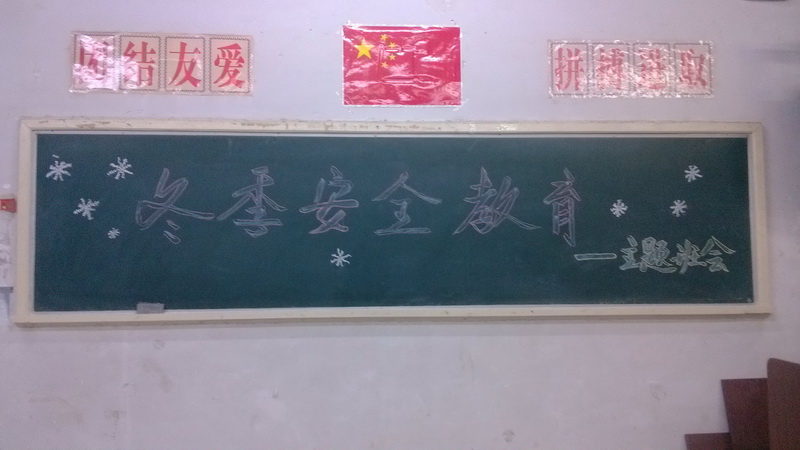 团结友爱
拼搏进取
冬季安全教育
—主题班会